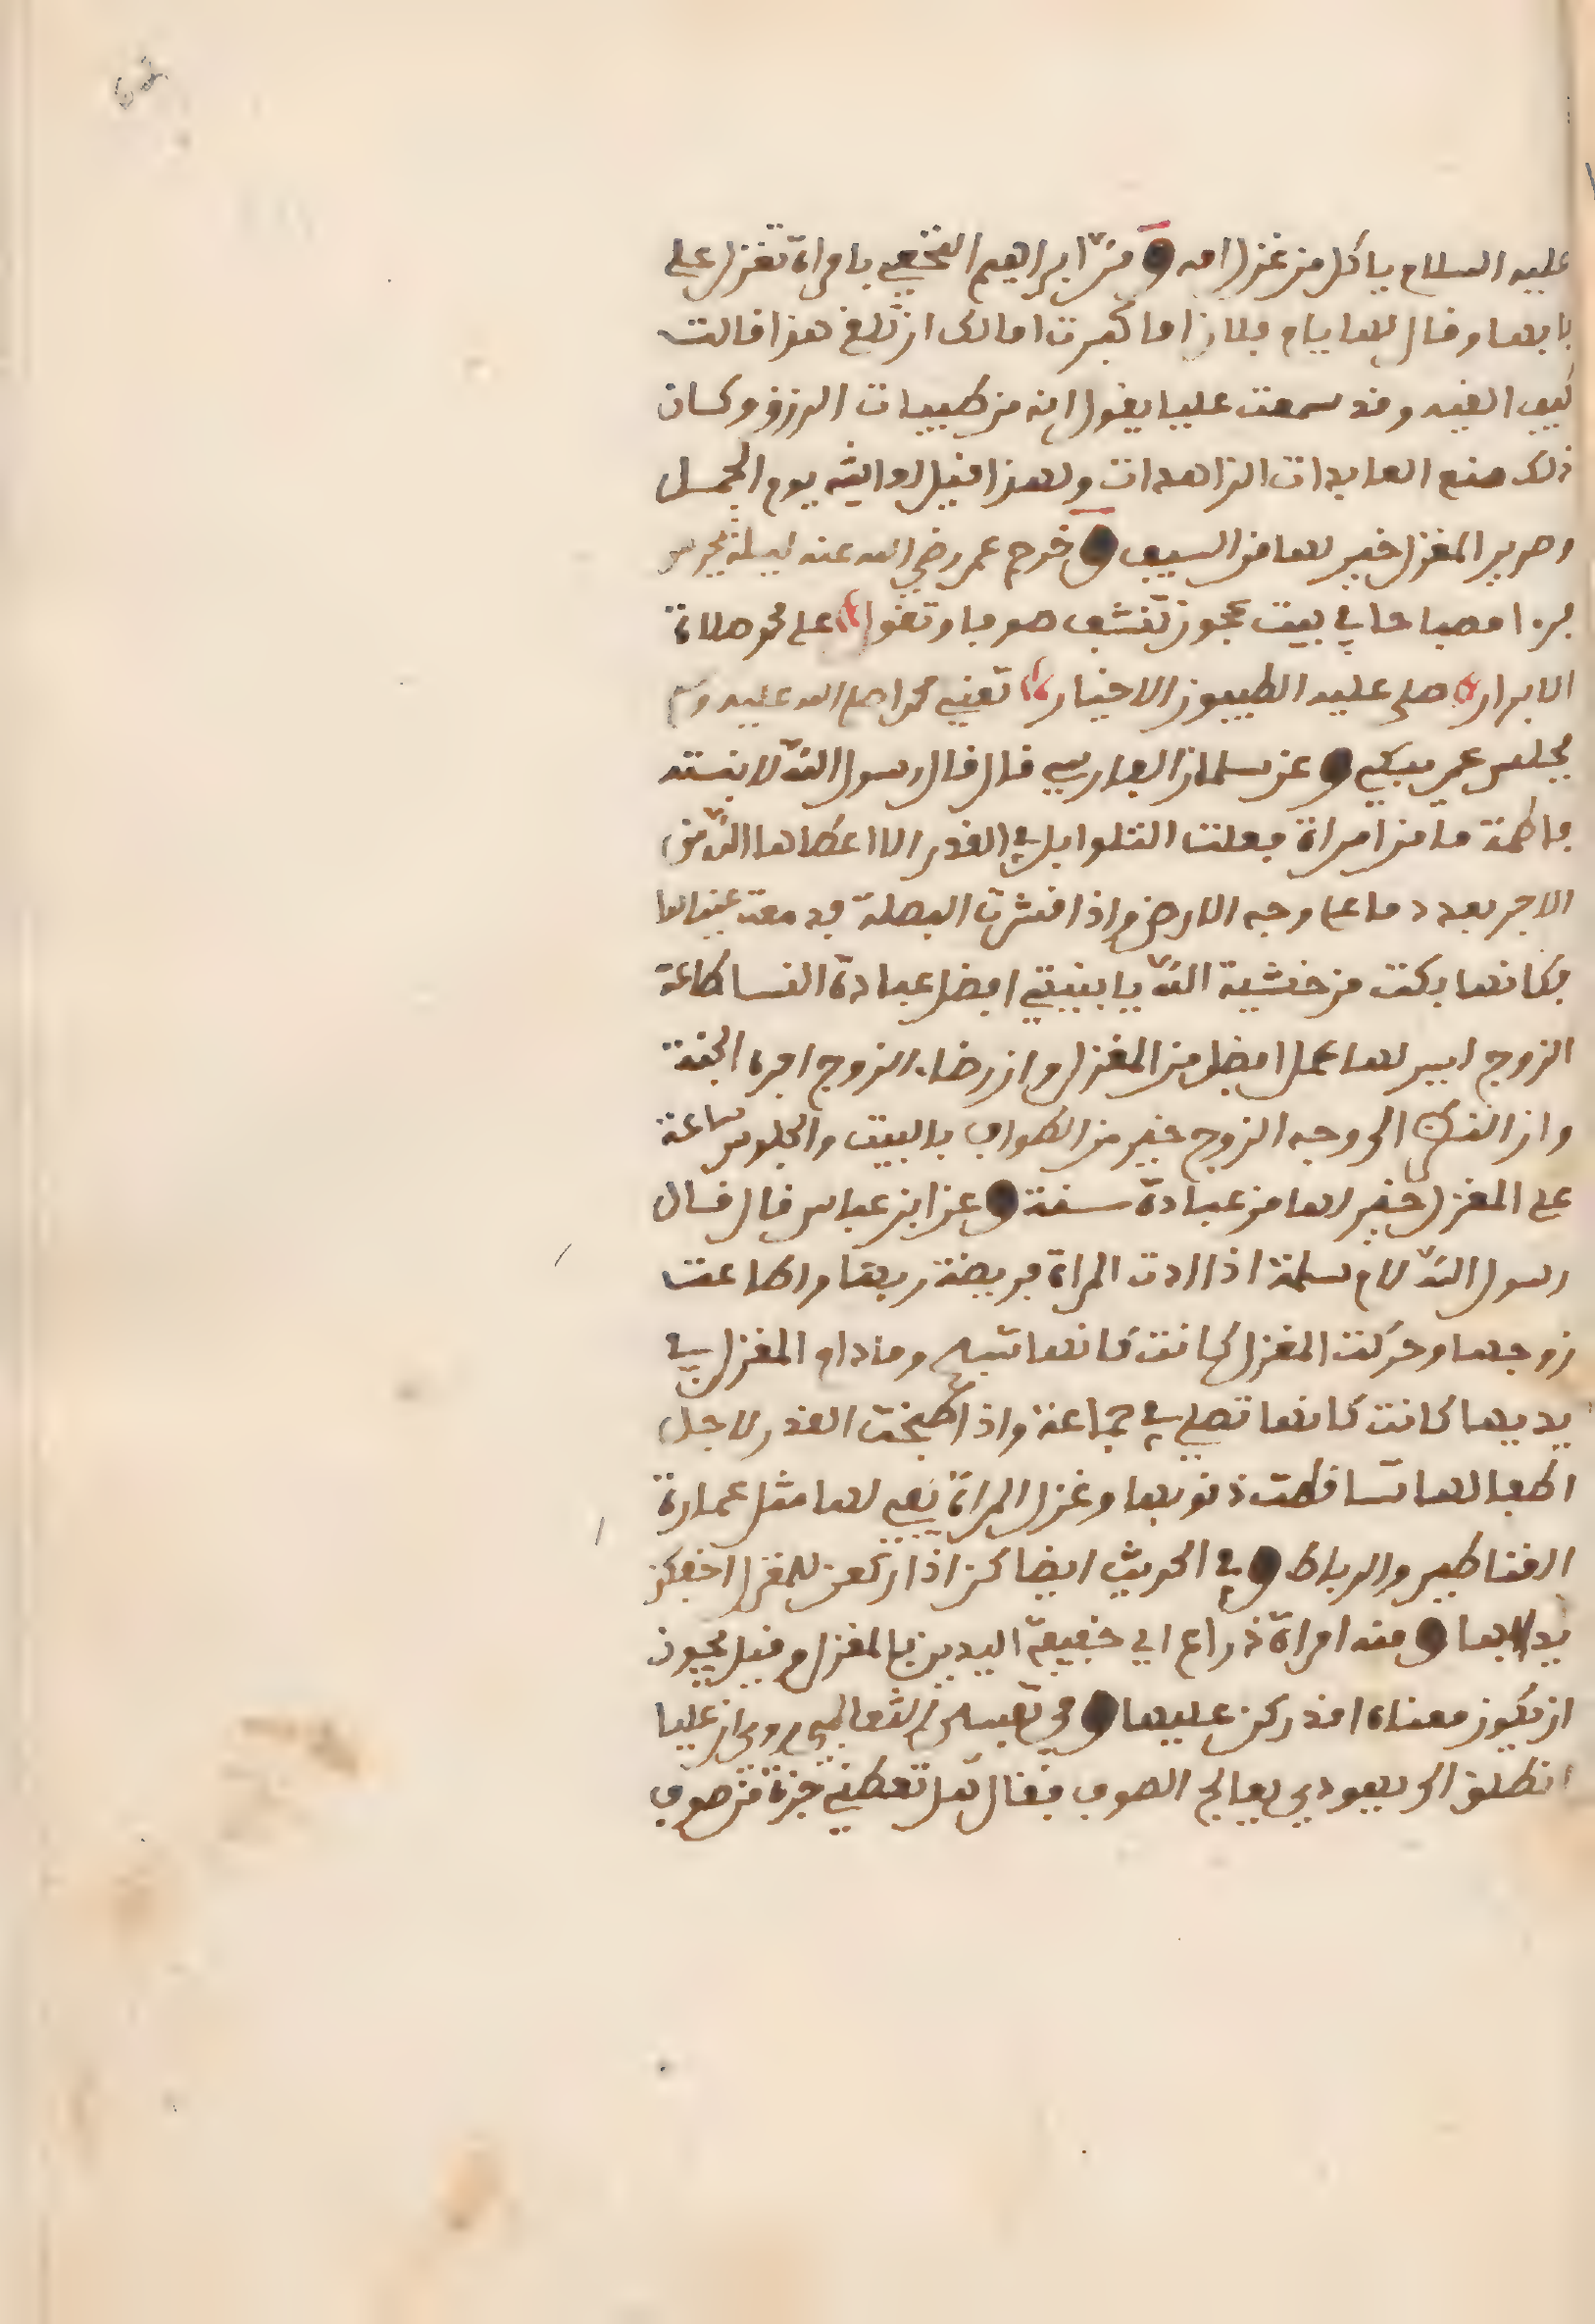 عليه السلام ياكل من غزل امه ومرّ ابراهيم النخعي بامراة تغزل على
بابها وقال لها يام فلان اما كبرت امالك ان تلغ هذا قالت
كيف القيه وقد سمعت عليا يقول انه من طيبات الرزق وكان
ذلك صنع العابدات الزاهدات ولهذا قيل لعايشه يوم الجمل
وصرير المغزل خير لها من السيف وخرج عمر رضي الله عنه ليلة يحرس
فرءا مصباحا في بيت عجوز تنشف صوفا وتقول على محمد صلاة
الابرار صلى عليه الطيبون الاخيار تعني محمدا صلى الله عليه وسلم
فجلس عمر يبكي وعن سلمان الفارسي قال قال رسول الله لابنته
فاطمة ما من امراة جعلت التلوابل في القدر الا اعطاها الله من
الاجر بعدد ما على وجه الارض واذا قشرت البصلة فدمعت عيناها
فكانها بكت من خشية الله يا بنيتي افضل عبادة النسا طاعة
الزوج ليس لها عمل افضل من المغزل وان رضاء الزوج اجره الجنة
وان النظر الى وجه الزوج خير من الطواف بالبيت والجلوس ساعة
على المغزل خير لها من عبادة سنة وعن ابن عباس قال قال
رسول الله لام سلمة اذا ادت المراة فريضة ربها واطاعت
زوجها وحركت المغزل كانت كانها تسبح وما دام المغزل في
يديها كانت كانها تصلي في جماعة واذا طبخت القدر لاجل
اطفالها تساقطت ذنوبها وغزل المراة نعم لها مثل عمارة
القناطير والرباط وفي الحديث ايضا كن اذا ركعن للمغزل اخفكن
يدا بها ومنه امراة ذراع اي خفيفة اليدين بالمغزل وقيل يجوز
ان يكون معناه اقدركن عليها وفي تفسير الثعالبي روي ان عليا
انطلق الى يهودي يعالج الصوف فقال هل تعطني جزة من صوف